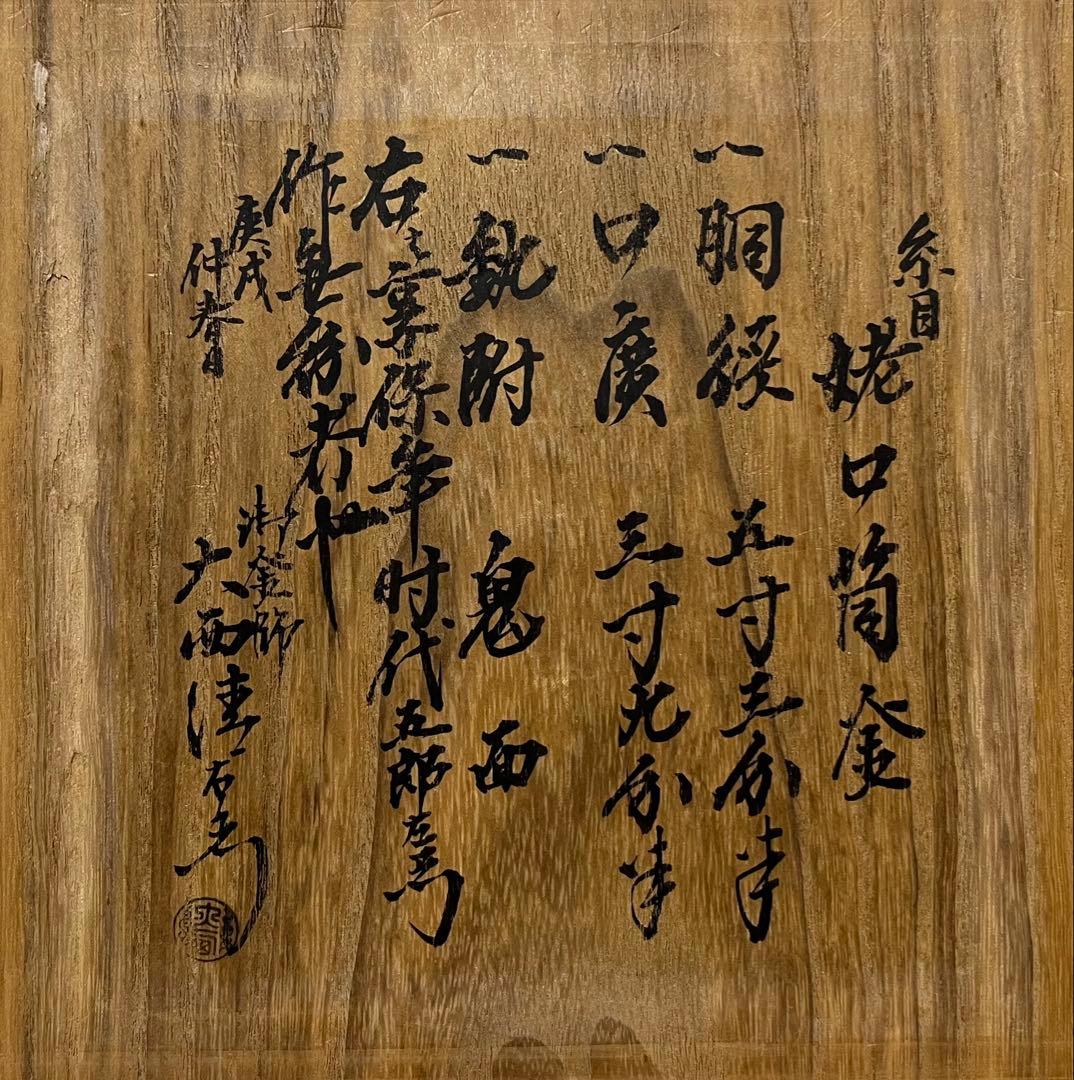 糸目
姥口筒釜
一胴経 五寸三分半
一口廣 三寸九分半
一釻附 鬼面
右之享保年时代五郎左衛門
作無紛者也
庚戌
仲春
御釜師
大西清右衛門